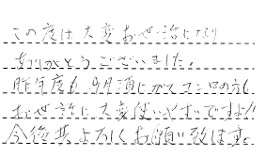 この度は大変お世話になり
ありがとうございました。
昨年度も9月頃にガスコンロの方も
お世話に大変使いやすいですよ!!
今後共よろしくお願い致します。